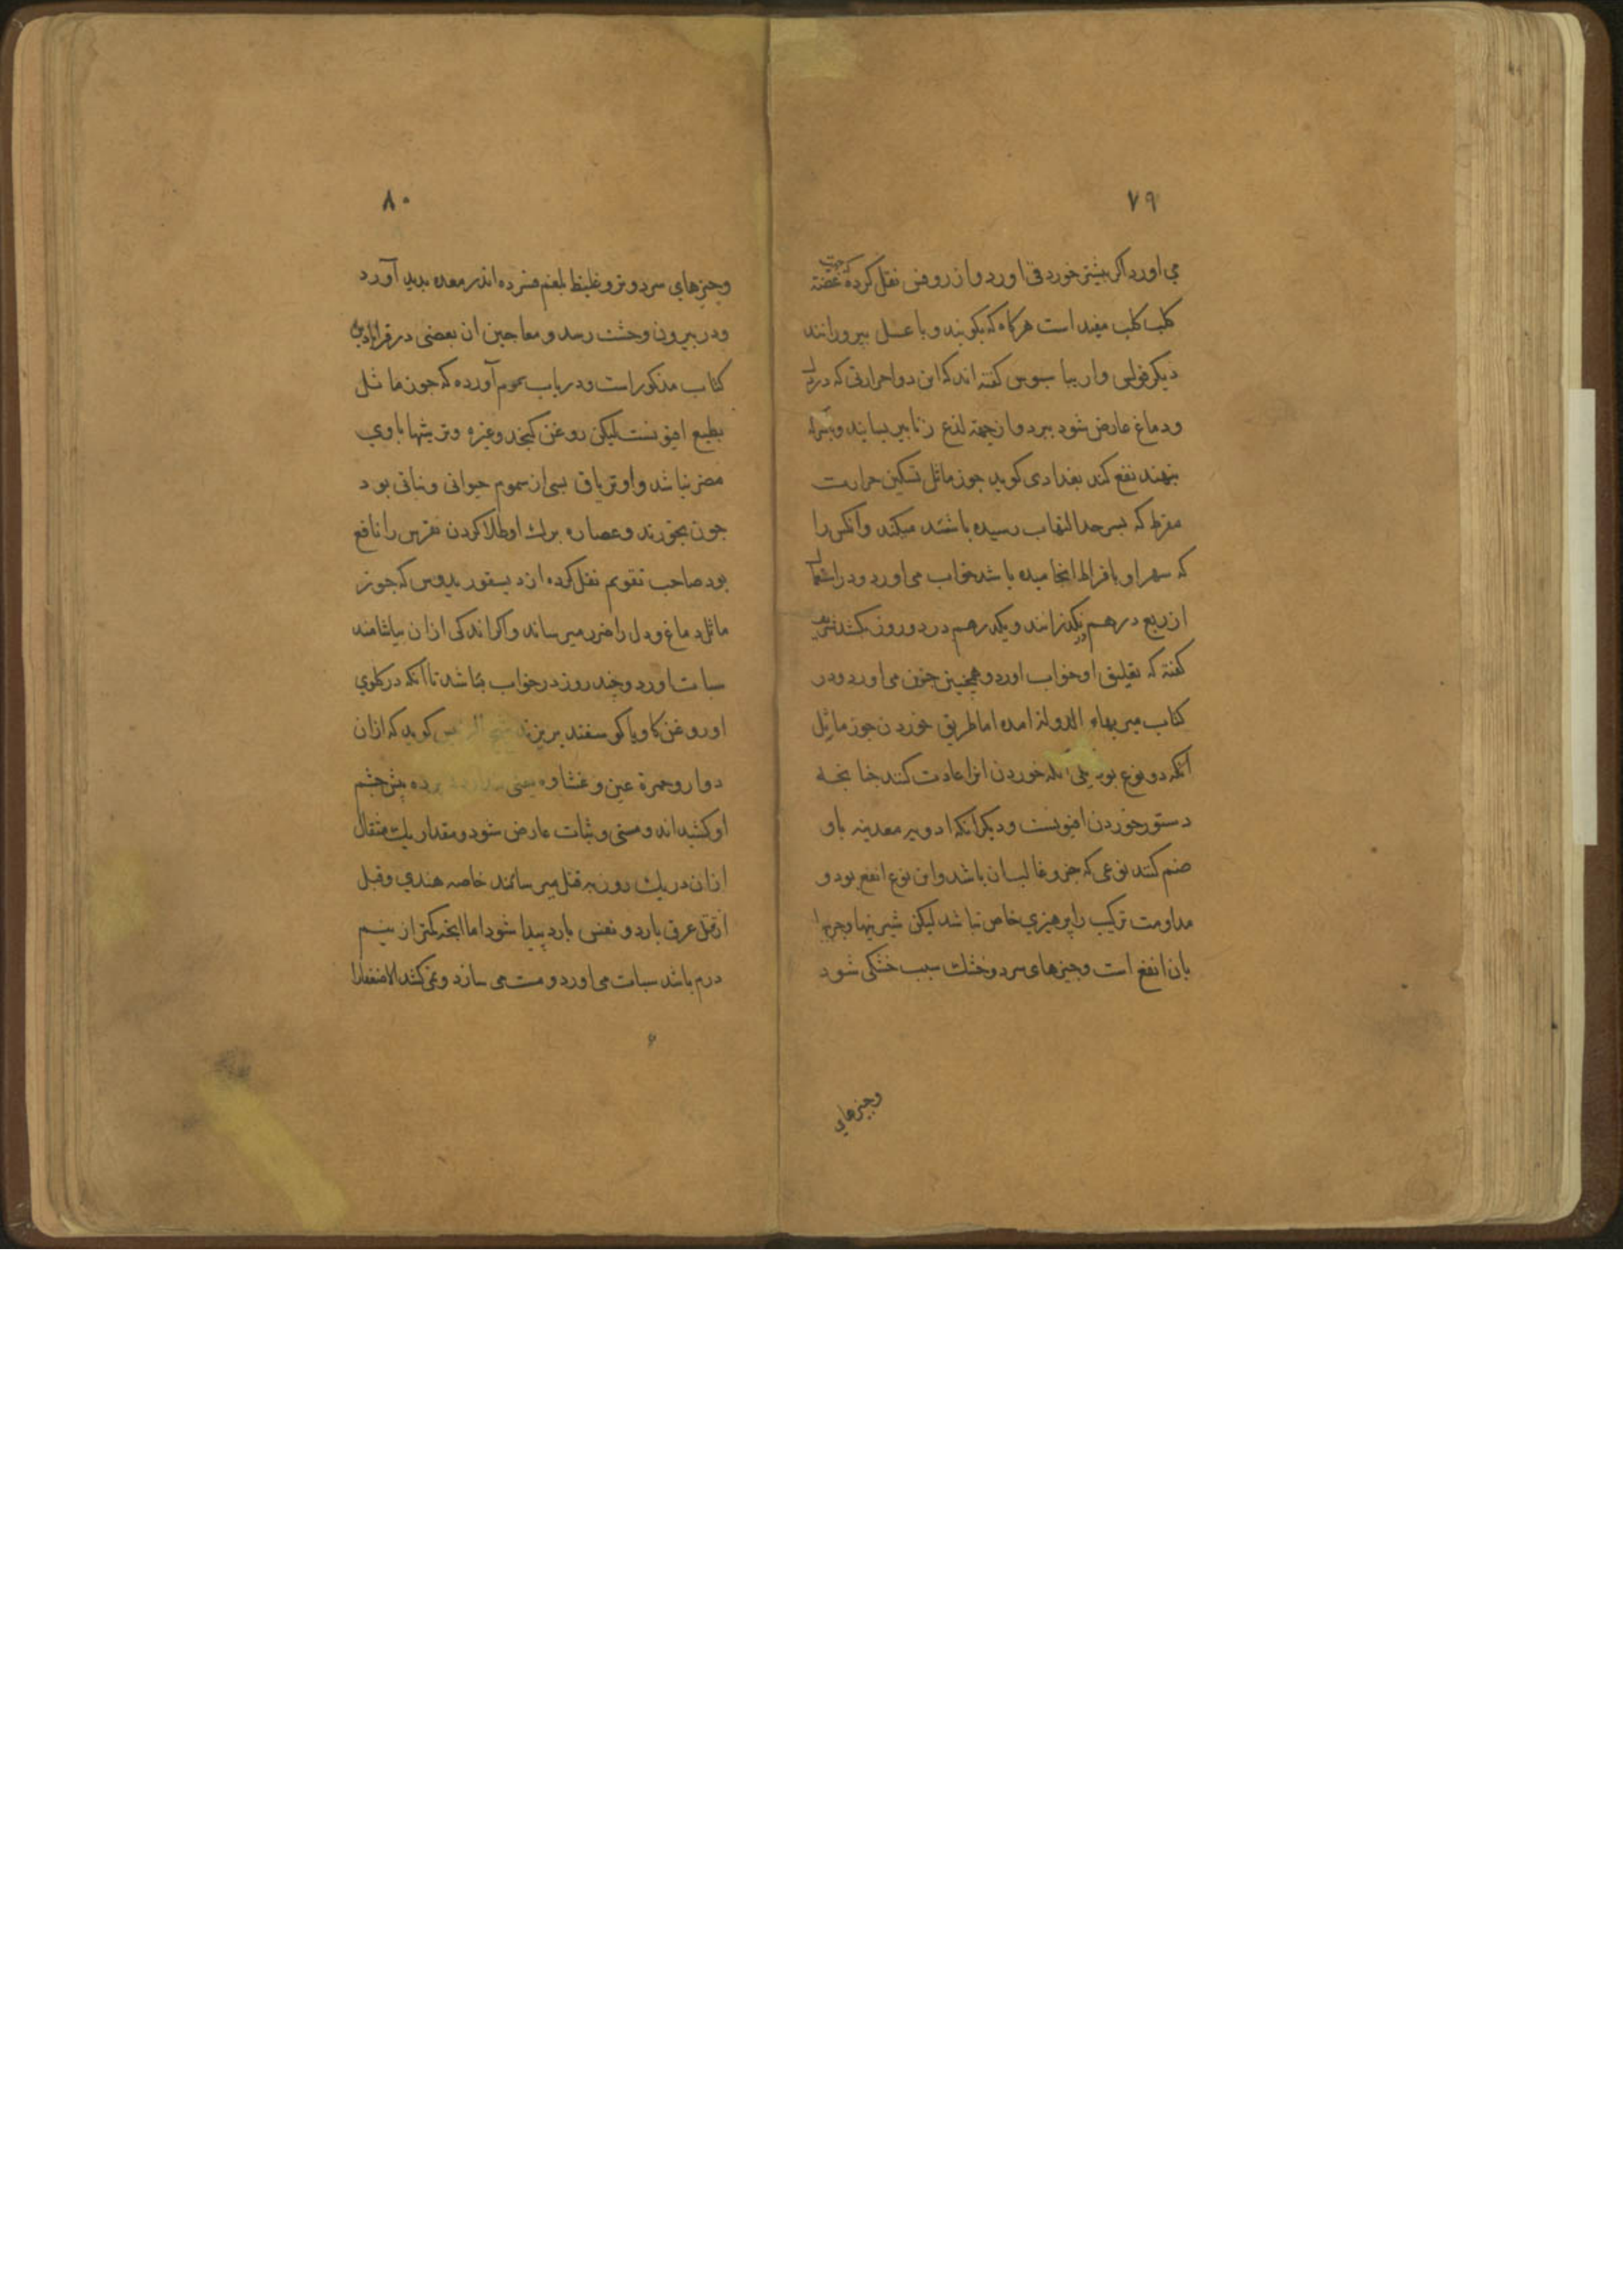 ۷۹
می اورد اکر بیشتر خورد قی اورد و از روفس نقل کرده که جهت عضته
کلب کلب مفید است هرکاه که بکوبند و با عسل بپرورانند
دیکر فولس واریباسیوس کفته اند که این دوا حرارتی که در دل
و دماغ عارض شود ببرد و از جهة لذع زنابیر بسایند و
بنهند نفع کند بغدادی کوید جوز ماثل تسکین حرارت
مفرط که بسر حد التهاب رسیده باشد میکند و انکس را
که سهر او بافراط انجامیده باشد خواب می اورد و در استعمال
از ربع درهم نکذرانند و یکدرهم در دو روز بکشد شریف
کفته که تعلیق او خواب اورد و همچنین جنون می اورد و در
کتاب میر بهاء الدوله امده اما طریق خوردن جوز ماثل
انکه دو نوع بود یکی انکه خوردن انرا عادت کنند چنانچه
دستور خوردن افیونست و دیکر انکه ادویه معدنیه باو
ضم کنند نوعی که جزو غالب ان باشد و این نوع انفع بود و
مداومت ترکیب را پرهیزی خاص نباشد لیکن شیرینیها و چربیها
بان انفع است و چیزهای سرد و خشک سبب خشکی شود
وچیزهای
۸۰
وچیزهای سرد و تر و غلیظ بلغم فسرده اندر معده بدید آورد
و در بیرون وحشت رسد و معاجین ان بعضی در قرابادین
کتاب مذکور است و در باب سموم آورده که جون ماثل
بطبع افیونست لیکن روغن کنجد و غیره و ترشیها با وی
مضر نباشد و او تریاق بسی از سموم حیوانی و نباتی بود
جون بخورند و عصاره برک او طلا کردن نقرس را نافع
بود صاحب تقویم نقل کرده از دیسقوریدوس که جوز
ماثل دماغ و دل را ضرر میرساند و اکر اندکی ازان بیاشامند
سبات اورد و چند روز در خواب باشد تا انکه در کلوی
او روغن کاو یا کوسفند بریزند شیخ الرئیس کوید که ازان
دوار و حمرة عین و غشاوه یعنی پرده پیش چشم
او کشیده اند و مستی و سبات عارض شود و مقدار یک مثقال
ازان در یک روز بقتل میرساند خاصه هندی و قبل
از قتل عرق بارد و نفس بارد پیدا شود اما انچه کمتر از نیم
درم باشد سبات می اورد و مست می سازد و نمی کشد الا ضعفا را